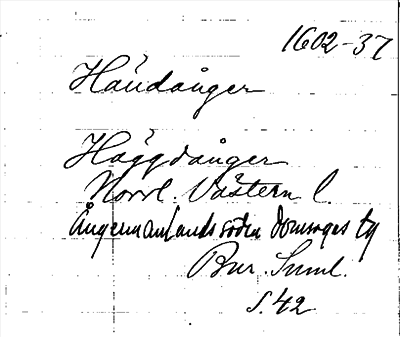 1602-37
Häudånger
Häggdånger
Norrl. Västern l.
Ångermanlands södra domsagas tg
Bur. Suml.
S. 42